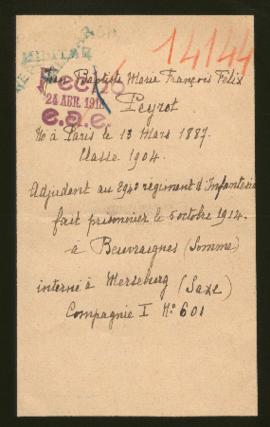 14144
Jean Baptiste Marie François Félix
Hecho
24 ABR. 191
e.a.e.
Peyrot
Né à Paris le 13 Mars 1887.
Classe 1904.
Adjudant au 294e régiment d'Infanterie
fait prisonnier le 5 octobre 1914.
à Beuvraignes (Somme)
interné à Merseburg (Saxe)
Compagnie I No 601